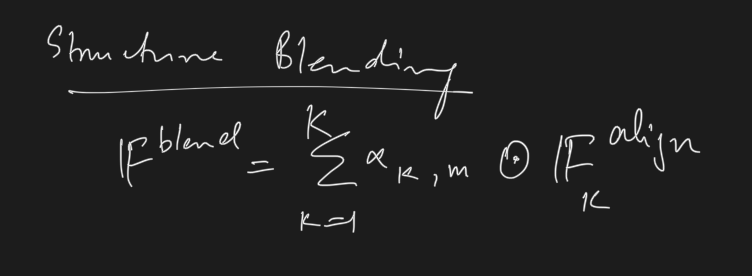 Structure Blending
𝔽^blend = K∑k=1 α_k,m ⊙ 𝔽_k^align